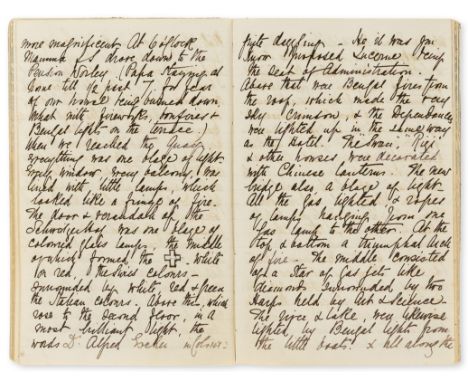 more magnificent. At 6 o'clock
Mamma & I drove down to the
Pension Worley (Papa staying at
home till ½ past 7 for fear
of our house being burned down,
what with fireworks, bonfires &
Bengal lights on the terrace.)
When we reached the Quay
everything was one blaze of light
every window, every balcony, was
lined with little lamps, which
looked like a fringe of fire.
The door & verandah of the
Schweizerhof was one blaze of
colored glass lamps, the middle
of which formed the ✚ white
on red, the Swiss colours –
surrounded by white, red & green
the Italian colours. Above this, which
rose to the second floor, in a
most brilliant light, the
words D. Alfred Escher in colours:
quite dazzling – He it was you
know proposed Lucerne being
the Seat of Administration.
Above that were Bengal fires from
the roof, which made the very
sky crimson, & the Dependances
were lighted up in the same way
as the Hotel. The Swan, Rigi
& other houses were decorated
with Chinese lanterns. The new
bridge also, a blaze of light.
All the gas lighted & ropes
of lamps hanging from one
gas lamp to the other. At the
top & bottom a triumphal arch
of fire. The middle consisted
of a star of gas jets like
diamonds surrounded by two
harps held by Art & Science.
The river & lake, were likewise
lighted by Bengal lights from
the little boats, & all along the